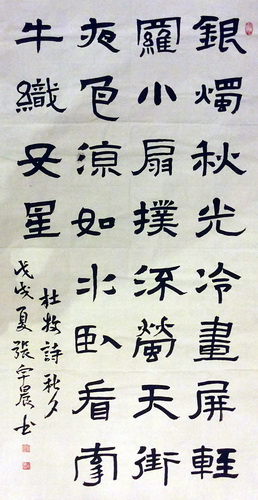 銀燭秋光冷畫屏輕
羅小扇撲流螢天街
夜色涼如水臥看牽
牛織女星
杜牧詩秋夕
戊戌夏張宇晨书